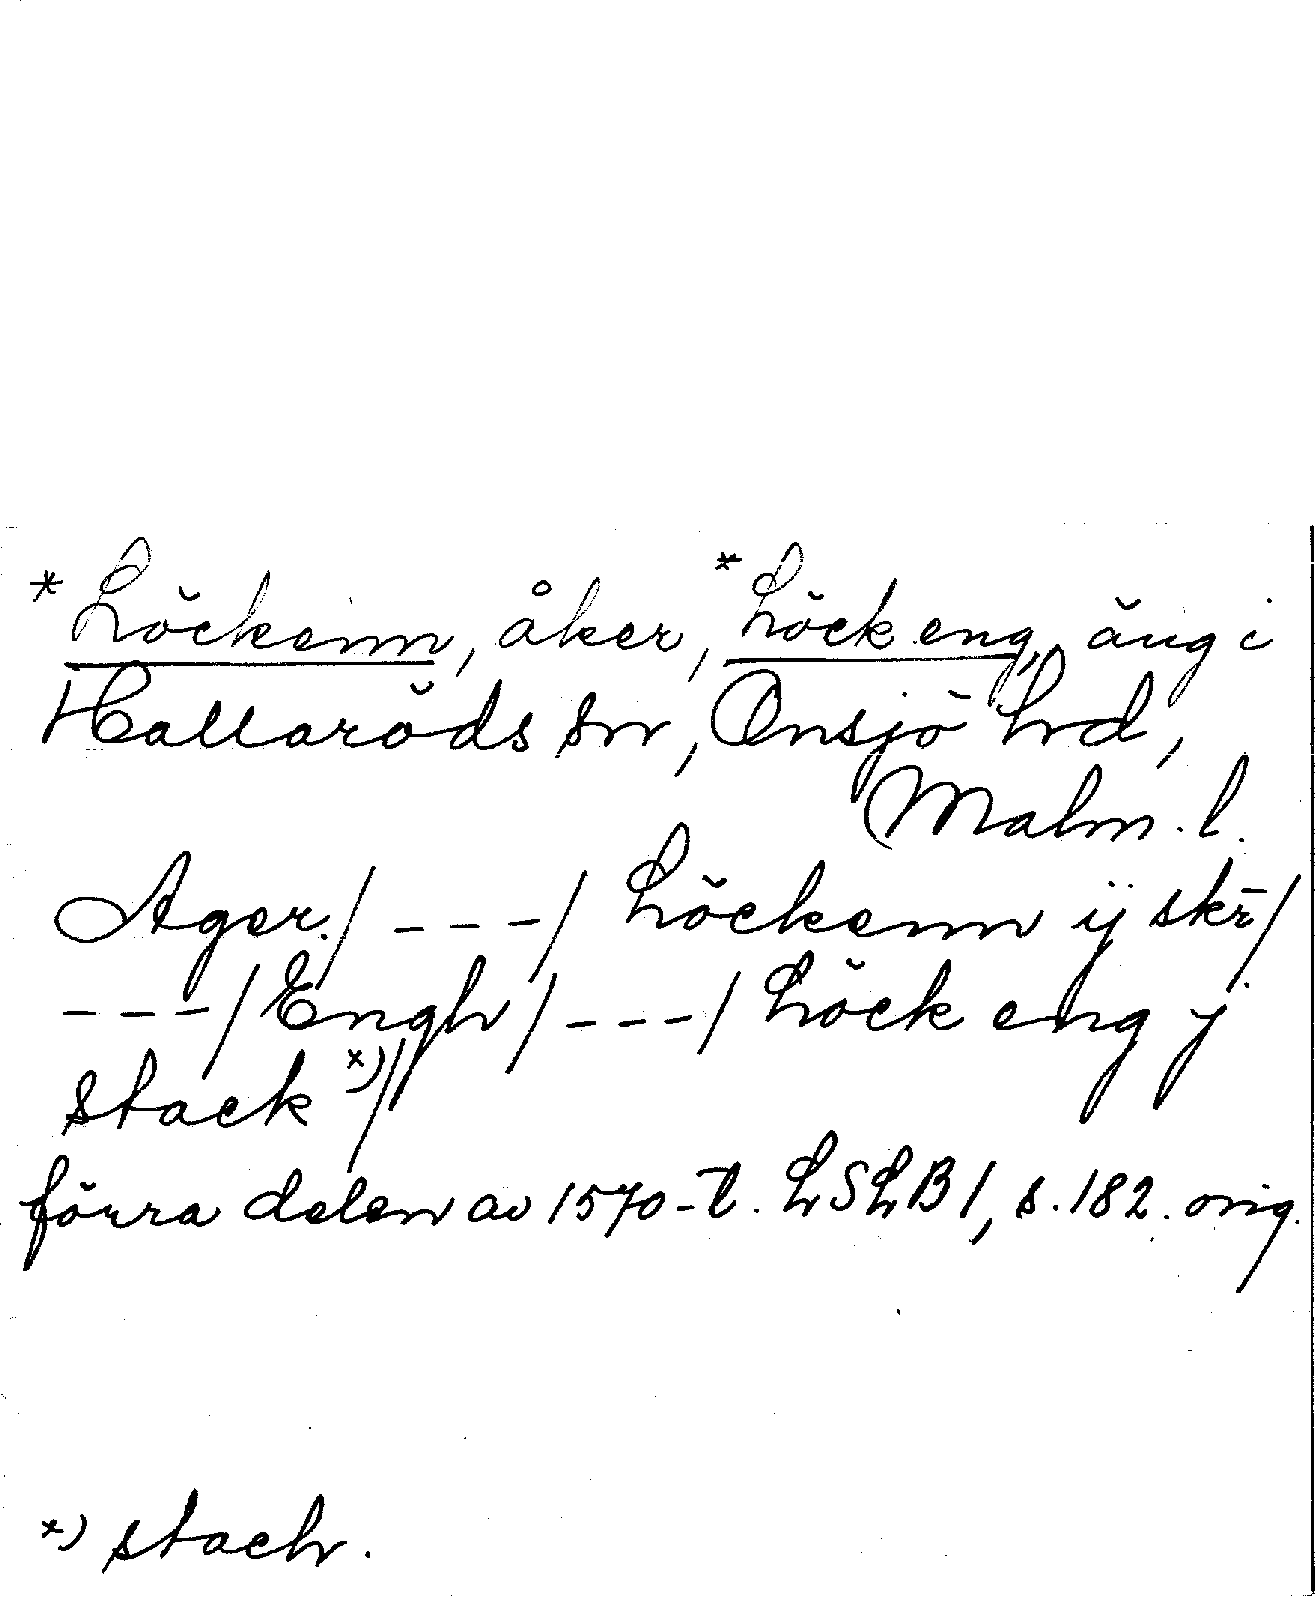 *Löckenn, åker, *Löck eng, äng i
Hallaröds sn, Onsjö hd,
Malm. l.
Ager./ - - - / Löckenn ij skr̄/
- - - / Engh / - - - / Löck eng j
stack *)//
förra delen av 1570-t. LSLB 1, s. 182. orig.
*) stach.